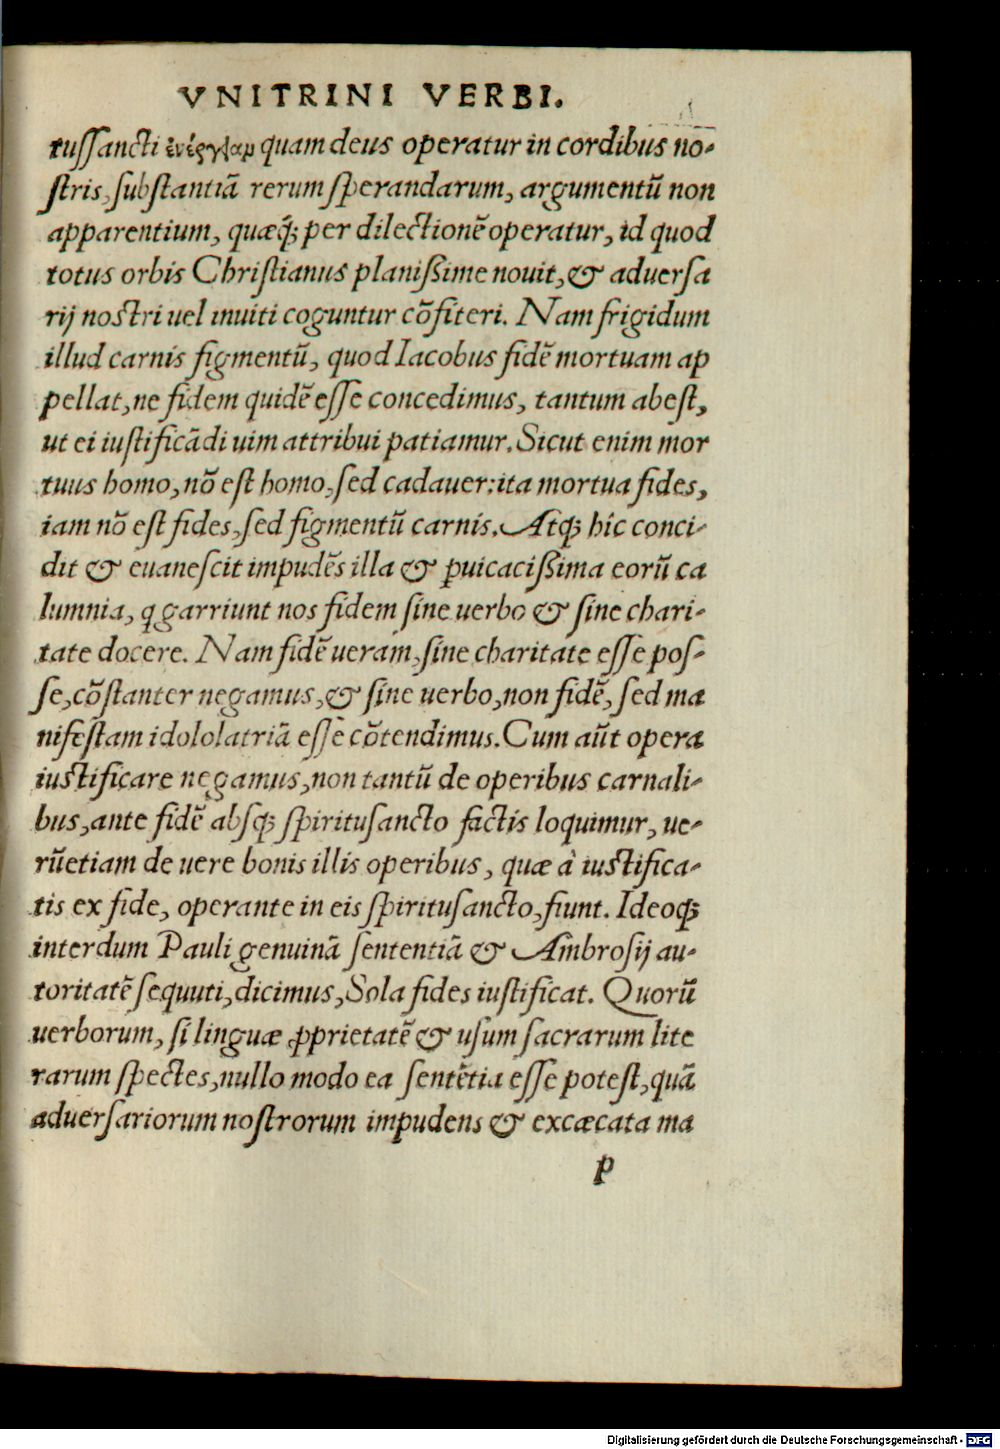 VNITRINI VERBI.
tuſſancti ἐνέργειαμ quam deus operatur in cordibus no-
ſtris, ſubſtantiā rerum ſperandarum, argumentū non
apparentium, quæq́ꝫ per dilectionē operatur, id quod
totus orbis Chriſtianus planißime nouit, & aduerſa
rij noſtri uel inuiti coguntur cōfiteri. Nam frigidum
illud carnis figmentū, quod Iacobus fidē mortuam ap
pellat, ne fidem quidē eſſe concedimus, tantum abeſt,
ut ei iuſtificādi uim attribui patiamur. Sicut enim mor
tuus homo, nō eſt homo, ſed cadauer: ita mortua fides,
iam nō eſt fides, ſed figmentū carnis. Atqꝫ hîc conci-
dit & euaneſcit impudēs illa & ꝑuicacißima eorū ca
lumnia, ꝗ garriunt nos fidem ſine uerbo & ſine chari-
tate docere. Nam fidē ueram, ſine charitate eſſe poſ-
ſe, cōſtanter negamus, & ſine uerbo, non fidē, ſed ma
nifeſtam idololatriā eſſe cōtendimus. Cum aūt opera
iuſtificare negamus, non tantū de operibus carnali-
bus, ante fidē abſqꝫ ſpirituſancto factis loquimur, ue-
rūetiam de uere bonis illis operibus, quæ à iuſtifica-
tis ex fide, operante in eis ſpirituſancto, fiunt. Ideoqꝫ
interdum Pauli genuinā ſententiā & Ambroſij au-
toritatē ſequuti, dicimus, Sola fides iuſtificat. Quorū
uerborum, ſi linguæ ꝓprietatē & uſum ſacrarum lite
rarum ſpectes, nullo modo ea ſentētia eſſe poteſt, quā
aduerſariorum noſtrorum impudens & excæcata ma
p
Digitalisierung gefördert durch die Deutsche Forschungsgemeinschaft - DFG